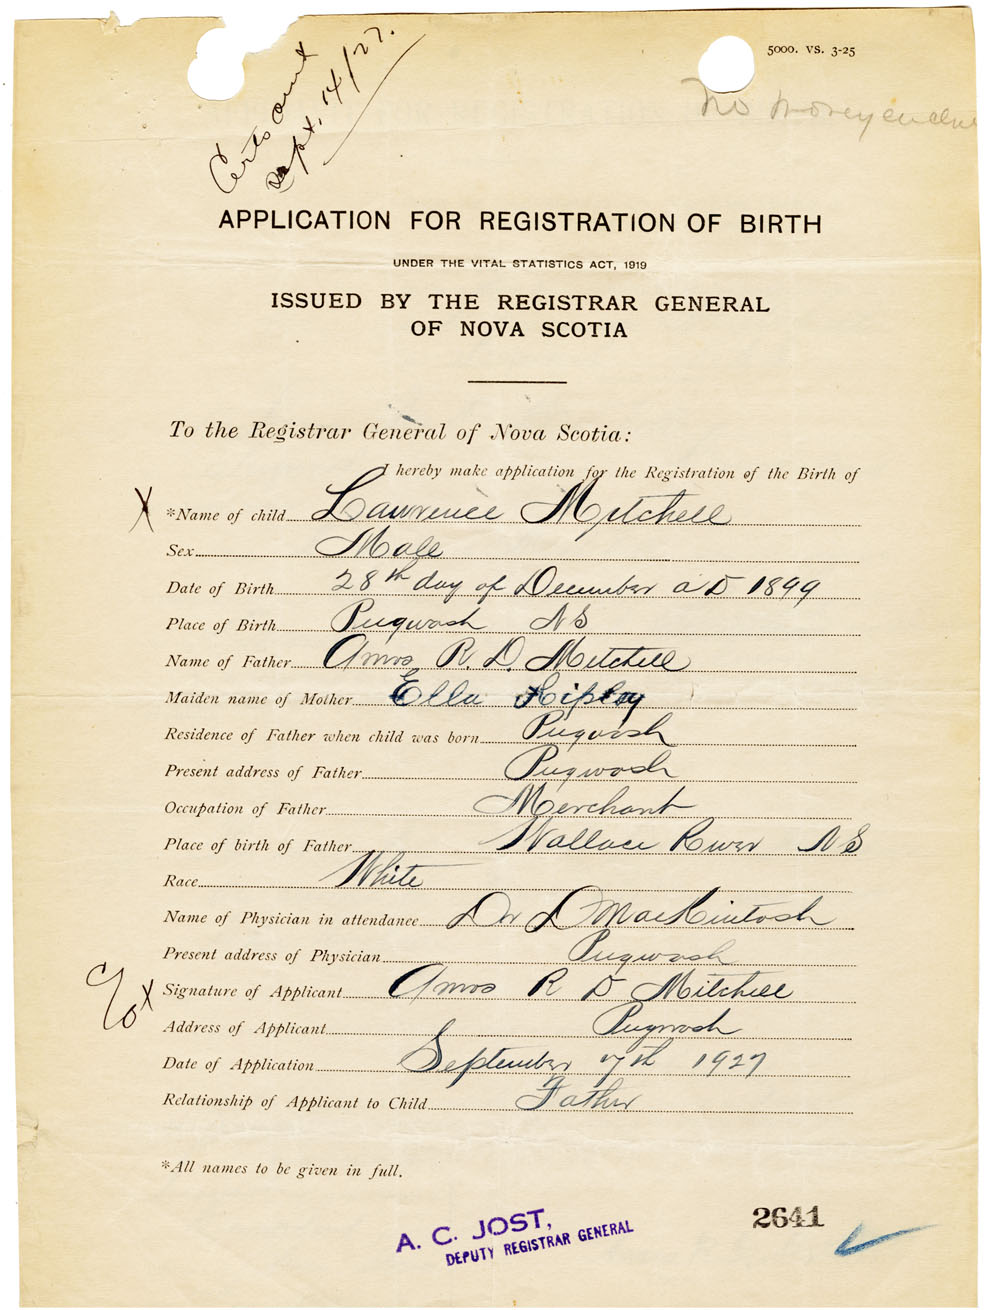 5000. VS. 3-25
Certs
Sept. 14/27.
No money
APPLICATION FOR REGISTRATION OF BIRTH
UNDER THE VITAL STATISTICS ACT, 1919
ISSUED BY THE REGISTRAR GENERAL
OF NOVA SCOTIA
To the Registrar General of Nova Scotia:
I hereby make application for the Registration of the Birth of
X *Name of child Lawrence Mitchell
Sex Male
Date of Birth 28th day of December a D 1899
Place of Birth Pugwash NS
Name of Father Amos R. D. Mitchell
Maiden name of Mother Ella Ripley
Residence of Father when child was born Pugwash
Present address of Father Pugwash
Occupation of Father Merchant
Place of birth of Father Wallace River NS
Race White
Name of Physician in attendance Dr D MacKintosh
Present address of Physician Pugwash
X Signature of Applicant Amos R D Mitchell
Address of Applicant Pugwash
Date of Application September 7th 1927
Relationship of Applicant to Child Father
*All names to be given in full.
A. C. JOST,
DEPUTY REGISTRAR GENERAL
2641